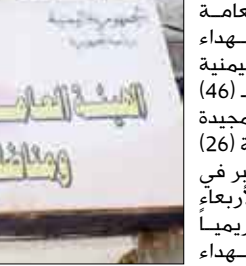 الجمهورية اليمنية
الهيئـة العامـ
ومناضـ
ـعامــة
ـهداء
يمنية
ـ (46)
مجيدة
ة (26)
بر في
أربعاء
ريميـاً
ـهداء